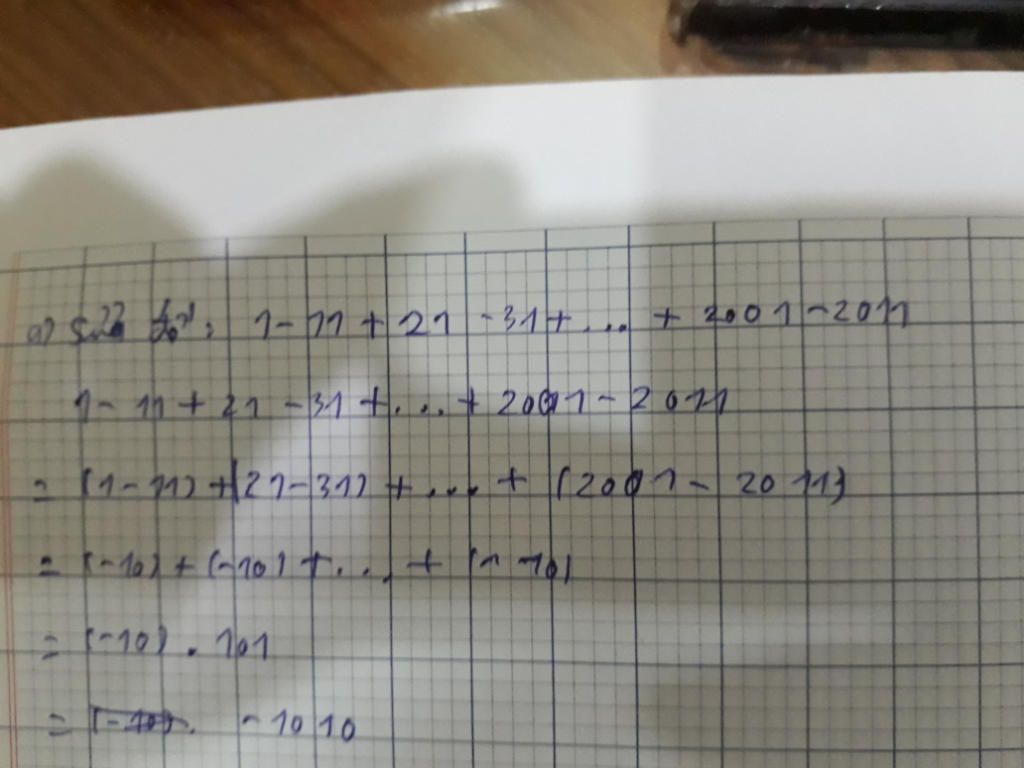 a) : 1 - 11 + 21 - 31 + ... + 2001 - 2011
1 - 11 + 21 - 31 + ... + 2001 - 2011
= (1 - 11) + (21 - 31) + ... + (2001 - 2011)
= (-10) + (-10) + ... + (-10)
= (-10) . 101
= - 1010